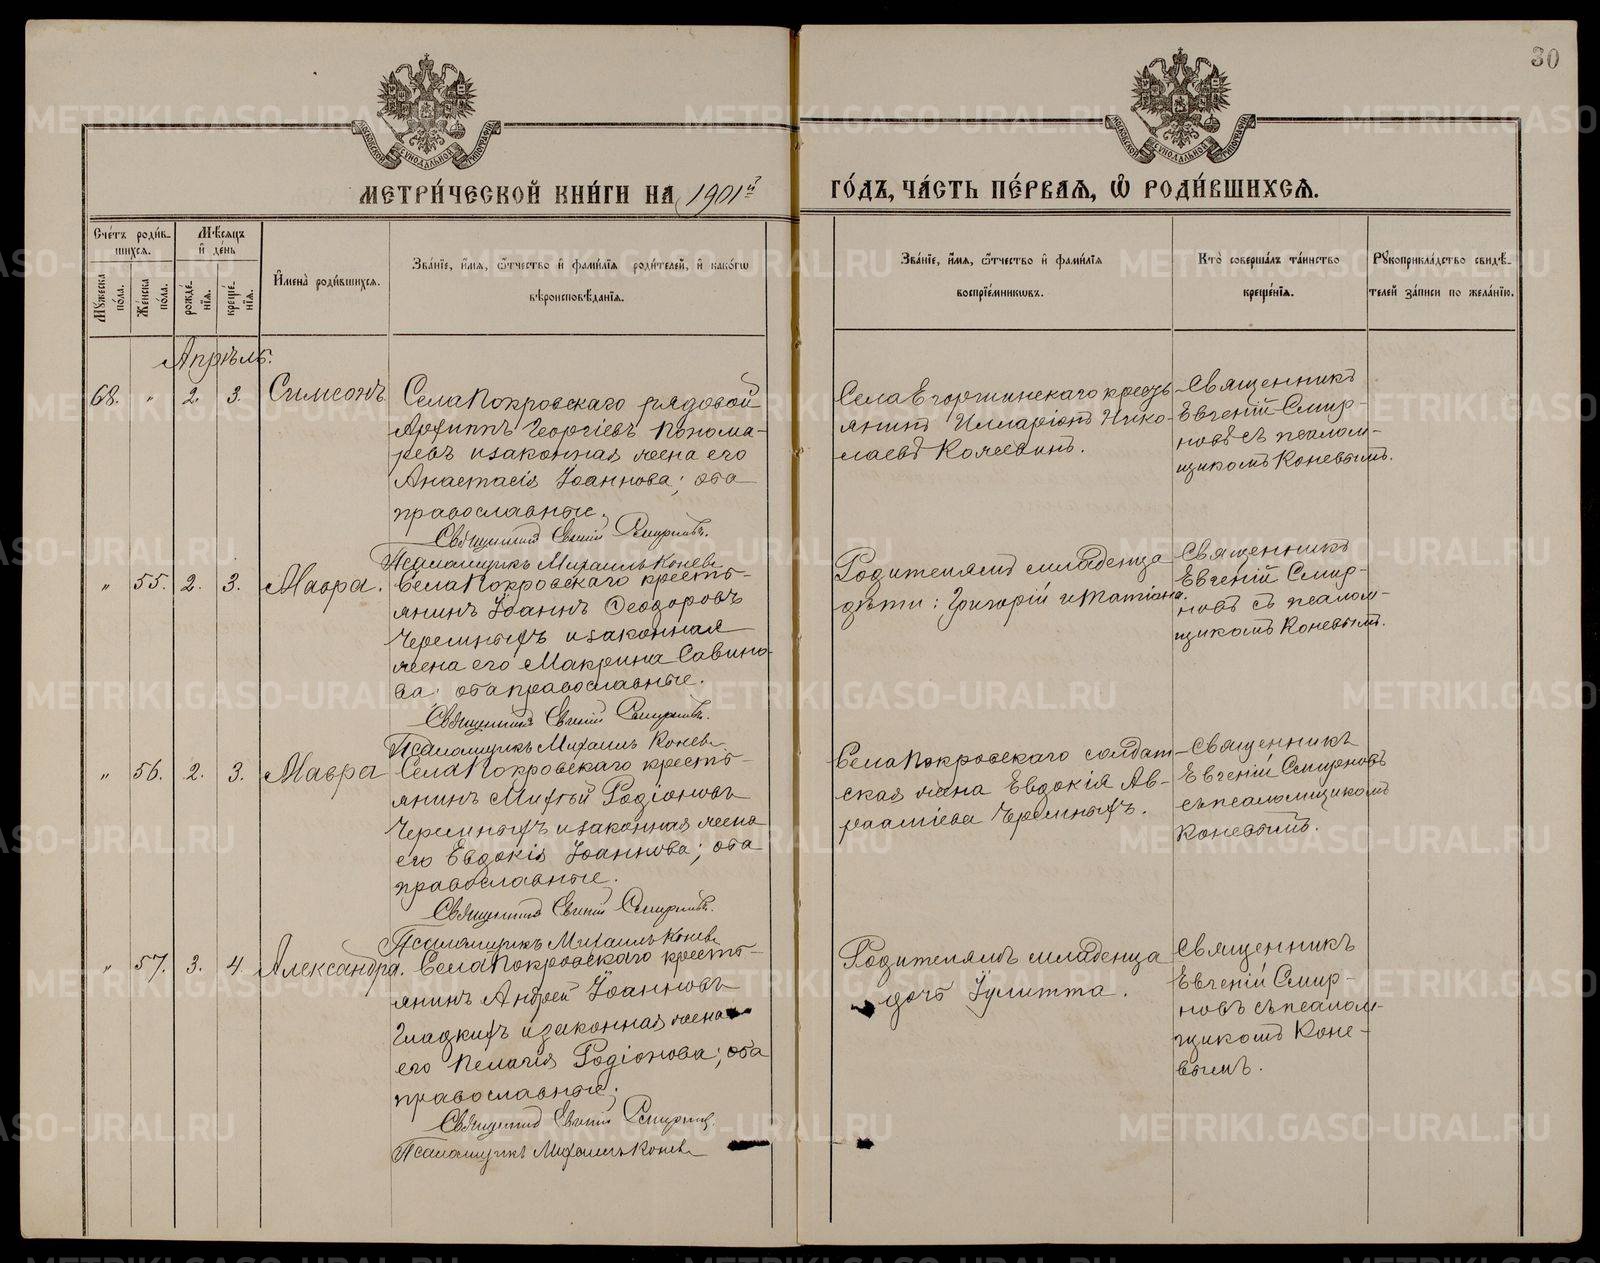 30
МОСКОВСКОЙ СѴНОДАЛЬНОЙ ТИПОГРАФІИ
МОСКОВСКОЙ СѴНОДАЛЬНОЙ ТИПОГРАФІИ
МЕТРИ́ЧЕСКОЙ КНИ́ГИ НА 1901й
ГО́ДЪ, ЧА́СТЬ ПЕ́РВАѦ, Ѡ҆ РОДИ́ВШИХСѦ.
Сче́тъ роди́в-
шихсѧ.
Мѣ́сѧцъ
и҆ де́нь
Мꙋ́жеска
по́ла.
Же́нска
по́ла.
рожде́-
нїѧ.
креще́-
нїѧ.
И҆мена̀ роди́вшихсѧ.
Зва́нїе, и҆́мѧ, ѻ҆́тчество и҆ фами́лїѧ роди́телей, и҆ како́гѡ
вѣроисповѣ́данїѧ.
Зва́нїе, и҆́мѧ, ѻ҆́тчество и҆ фами́лїѧ
воспрїе́мникѡвъ.
Кто̀ соверша́лъ та́инство
креще́нїѧ.
Рꙋкоприкла́дство свидѣ́-
телей за́писи по жела́нїю.
Апрѣль.
68. " 2. 3. Симеонъ
Села Покровскаго рядовой
Архиппъ Георгіевъ Понома-
ревъ и законная жена его
Анастасія Іоаннова; оба
православные.
Священникъ Евгеній Смирновъ.
Псаломщикъ Михаилъ Коневъ
Села Егоршинскаго кресть-
янинъ Илларіонъ Нико-
лаевъ Кожевинъ.
Священникъ
Евгеній Смир-
новъ съ псалом-
щикомъ Коневымъ.
" 55. 2. 3. Мавра.
Села Покровскаго кресть-
янинъ Іоаннъ Ѳеодоровъ
Черемныхъ и законная
жена его Макрина Савино-
ва; оба православные.
Священникъ Евгеній Смирновъ.
Псаломщикъ Михаилъ Коневъ
Родителямъ младенца
дѣти: Григорій и Татіана.
Священникъ
Евгеній Смир-
новъ съ псалом-
щикомъ Коневымъ.
" 56. 2. 3. Мавра
Села Покровскаго кресть-
янинъ Родіоновъ
Черемныхъ и законная жена
его Евдокія Іоаннова; оба
православные.
Священникъ Евгеній Смирновъ.
Псаломщикъ Михаилъ Коневъ
Села Покровскаго солдат-
ская жена Евдокія Ав-
рааміева Черемныхъ.
Священникъ
Евгеній Смирновъ
съ псаломщикомъ
Коневымъ.
" 57. 3. 4. Александра.
Села Покровскаго кресть-
янинъ Андрей Іоанновъ
Гладкихъ и законная жена
его Пелагія Родіонова; оба
православные.
Священникъ Евгеній Смирновъ.
Псаломщикъ Михаилъ Коневъ
Родителямъ младенца
дочь Іулитта.
Священникъ
Евгеній Смир-
новъ съ псалом-
щикомъ Коне-
вымъ.
METRIKI.GASO-URAL.RU